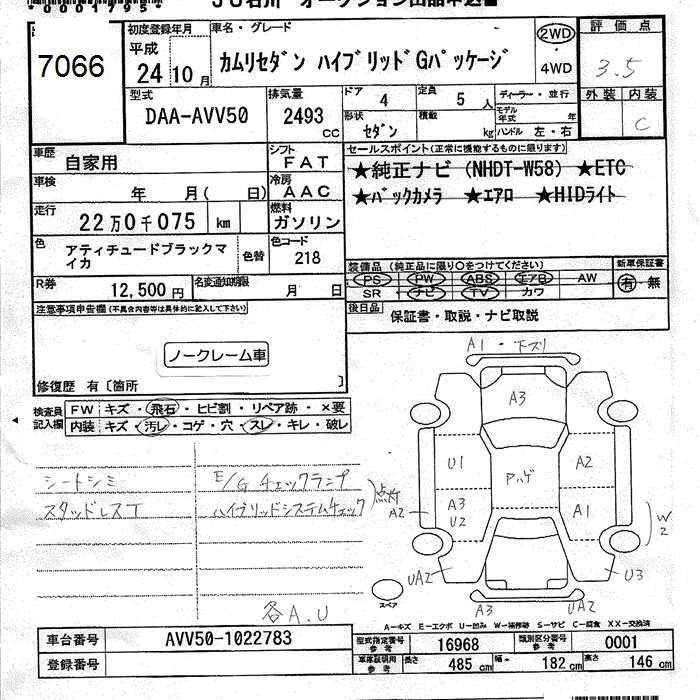 00017951
JU石川 オークション出品申込書
7066
初度登録年月
平成
24 年 10 月
車名・グレード
カムリセダン ハイブリッドGパッケージ
2WD
・
4WD
評価点
3.5
外装 内装
C
型式
DAA-AVV50
排気量
2493 CC
ドア 4
定員 5 人
形状 セダン
積載 kg
ディーラー・並行
モデル年式 年
ハンドル 左・右
車歴 自家用
シフト FAT
車検 年 月( 日)
冷房 AAC
走行 22万0千075 km
燃料 ガソリン
色 アティチュードブラックマイカ
色替
色コード 218
R券 12,500 円
名変通知期限 月 日
セールスポイント(正常に機能するものに限ります)
★純正ナビ (NHDT-W58) ★ETC
★バックカメラ ★エアロ ★HIDライト
装備品 (純正品に限り○をつけてください)
PS PW ABS エアB AW
SR ナビ TV カワ
新車保証書
有・無
後日品 保証書・取説・ナビ取説
注意事項申告欄(不具合内容等は具体的に記入して下さい)
ノークレーム車
修復歴 有〔箇所 〕
検査員記入欄
FW キズ・飛石・ヒビ割・リペア跡・×要
内装 キズ・汚レ・コゲ・穴・スレ・キレ・破レ
シートシミ
スタッドレスT
E/G チェックランプ
ハイブリッドシステムチェック
点灯
各A.U
A1・下スリ
A3
U1
Pハゲ
A2
A3
U2
A1
A2
W2
UA2
U3
A3
UA2
スペア
A-キズ E-エクボ U-凹み W-補修跡 S-サビ C-腐食 XX-交換済
車台番号 AVV50-1022783
登録番号
型式指定番号 参考 16968
類別区分番号 参考 0001
車庫証明用 参考 長さ 485 cm 幅 182 cm 高さ 146 cm